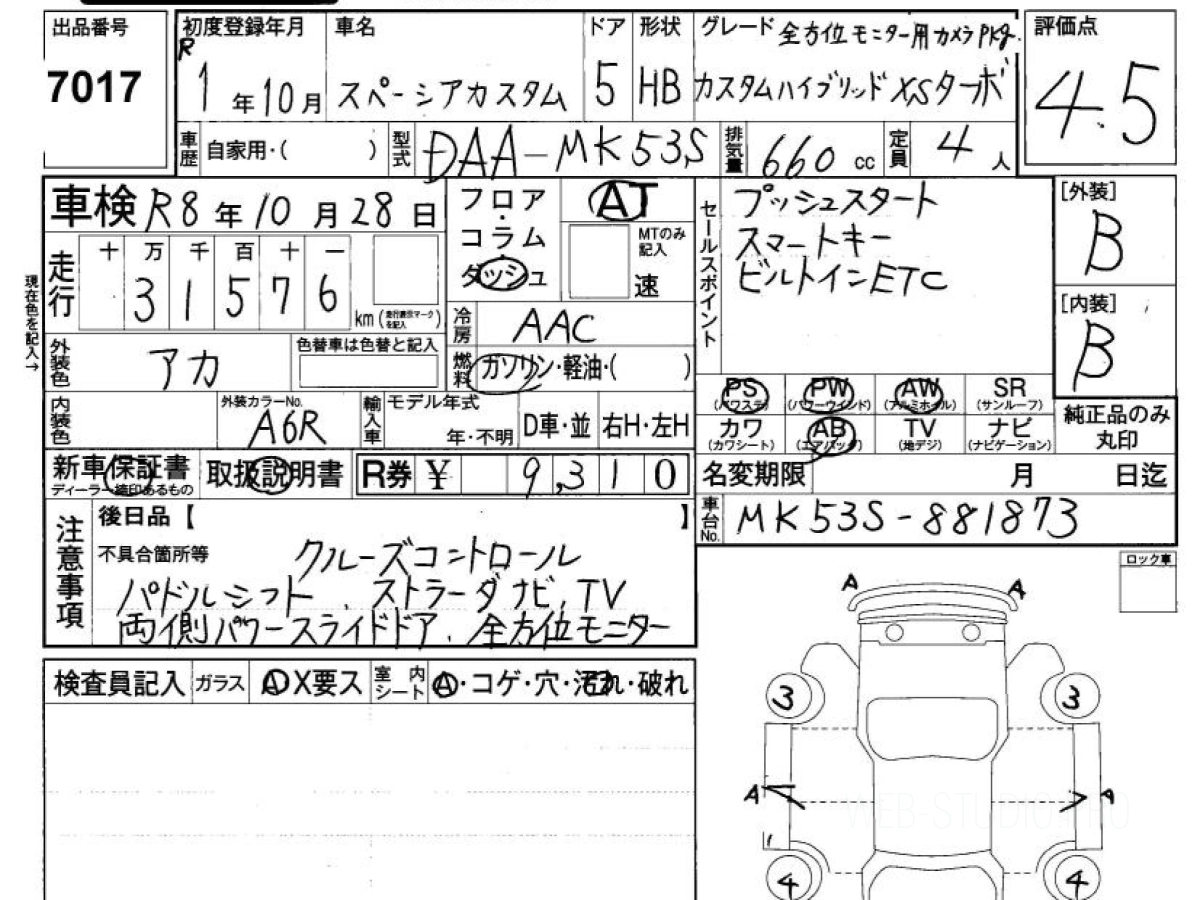 出品番号
7017
初度登録年月
R 1年10月
車名
スペーシアカスタム
ドア
5
形状
HB
グレード 全方位モニター用カメラPkg.
カスタムハイブリッドXSターボ
評価点
4.5
車歴 自家用・( )
型式 DAA-MK53S
排気量 660 cc
定員 4人
車検 R8年10月28日
フロア・コラム・ダッシュ
AT
MTのみ記入
速
セールスポイント
プッシュスタート
スマートキー
ビルトインETC
[外装]
B
[内装]
B
現在色を記入→
走行
十 万 千 百 十 一
3 1 5 7 6
km (走行表示マークを記入)
冷房 AAC
燃料 ガソリン・軽油・( )
外装色 アカ
色替車は色替と記入
内装色
外装カラーNo.
A6R
輸入車
モデル年式
年・不明
D車・並
右H・左H
PS (パワステ)
PW (パワーウインド)
AW (アルミホイル)
SR (サンルーフ)
カワ (カワシート)
AB (エアバッグ)
TV (地デジ)
ナビ (ナビゲーション)
純正品のみ
丸印
新車保証書
ディーラー捺印あるもの
取扱説明書
R券 ¥ 9,310
名変期限 月 日迄
車台No. MK53S-881873
注意事項
後日品【 】
不具合箇所等 クルーズコントロール
パドルシフト、ストラーダナビ、TV
両側パワースライドドア、全方位モニター
ロック車
検査員記入
ガラス
A X要ス
室内シート
A・コゲ・穴・汚れ・破れ
A A
3 3
A A
1
4 4
WEB-STUDIO PRO